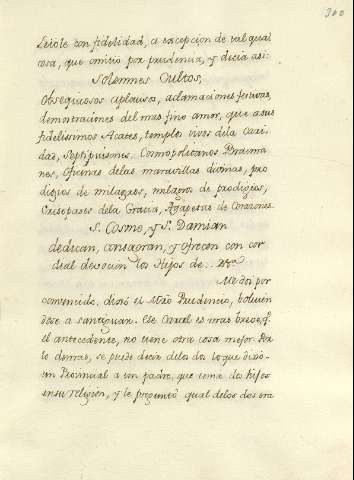 340
Leiole con fidelidad, a excepcion de tal qual
cosa, que omitio por prudencia, y decia asi:
Solemnes Cultos,
Obsequiosos aplausos, aclamaciones festivas,
demostraciones del mas fino amor, que a sus
fidelissimos Acates, templos vivos de la Cari-
dad, Septipuisones. Cosmopolitanos Bracma-
nes, Oficinas de las maravillas divinas, pro
digios de milagros, milagros de prodigios,
Crisopasos de la Gracia, Agapetas de Corazones.
S. Cosme, y S. Damian
dedican, consagran, y ofrecen con cor
dial devocion los Hijos de ... &c.
Me doi por
convencido, dixo el Mro Prudencio, bolvien
dose a santiguar. Ese Cartel es mas breve, q.
el antecedente, no tiene otra cosa mejor. Por
lo demas, se puede decir de los dos lo que dixo
un Provincial a un padre, que tenia dos hijos
en su religion, y le preguntò qual de los dos era